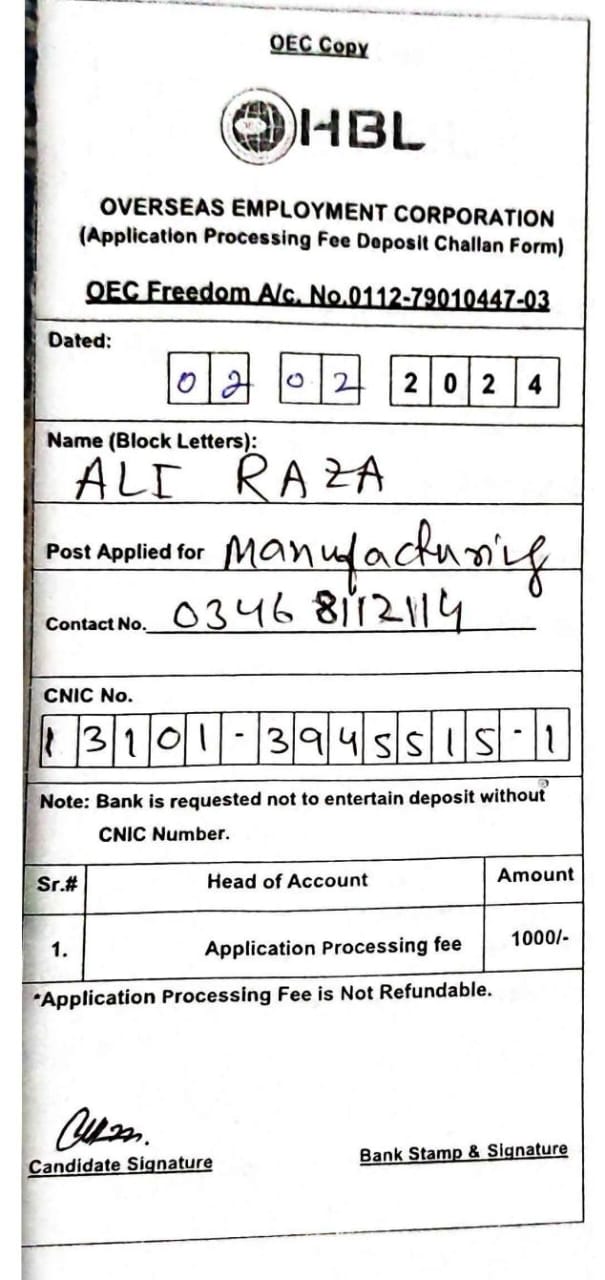 OEC Copy
HBL
OVERSEAS EMPLOYMENT CORPORATION
(Application Processing Fee Deposit Challan Form)
OEC Freedom A/c. No.0112-79010447-03
Dated:
0 2 0 2 2 0 2 4
Name (Block Letters):
ALI RAZA
Post Applied for Manufacturing
Contact No. 0346 8112114
CNIC No.
13101-3945515-1
Note: Bank is requested not to entertain deposit without
CNIC Number.
Sr.# Head of Account Amount
1. Application Processing fee 1000/-
*Application Processing Fee is Not Refundable.
Candidate Signature Bank Stamp & Signature